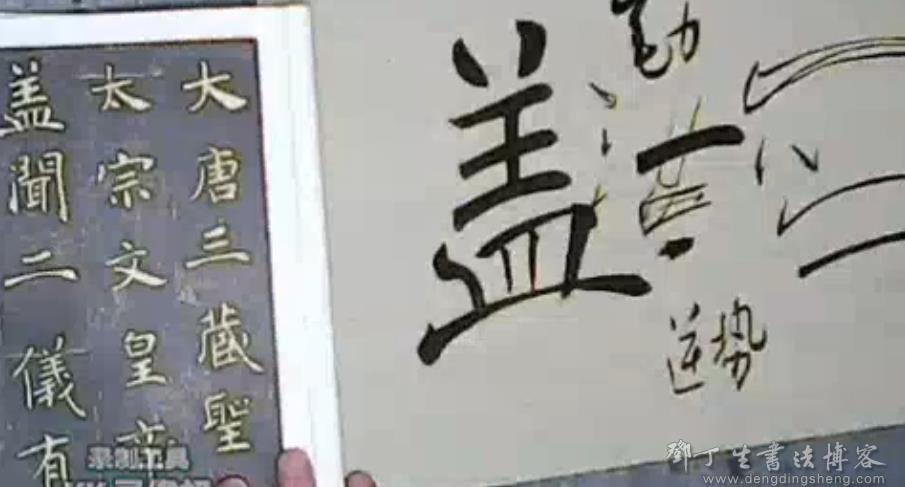 大唐三藏聖
太宗文皇
盖聞二儀有
盖
勤
逆势
录制工具
鄧丁生書法博客
www.dengdingsheng.com